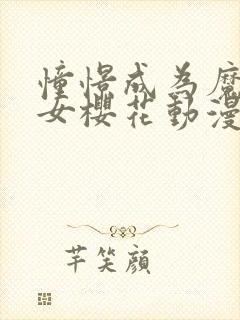 憧憬成為魔
女櫻花動漫
芊笑顏